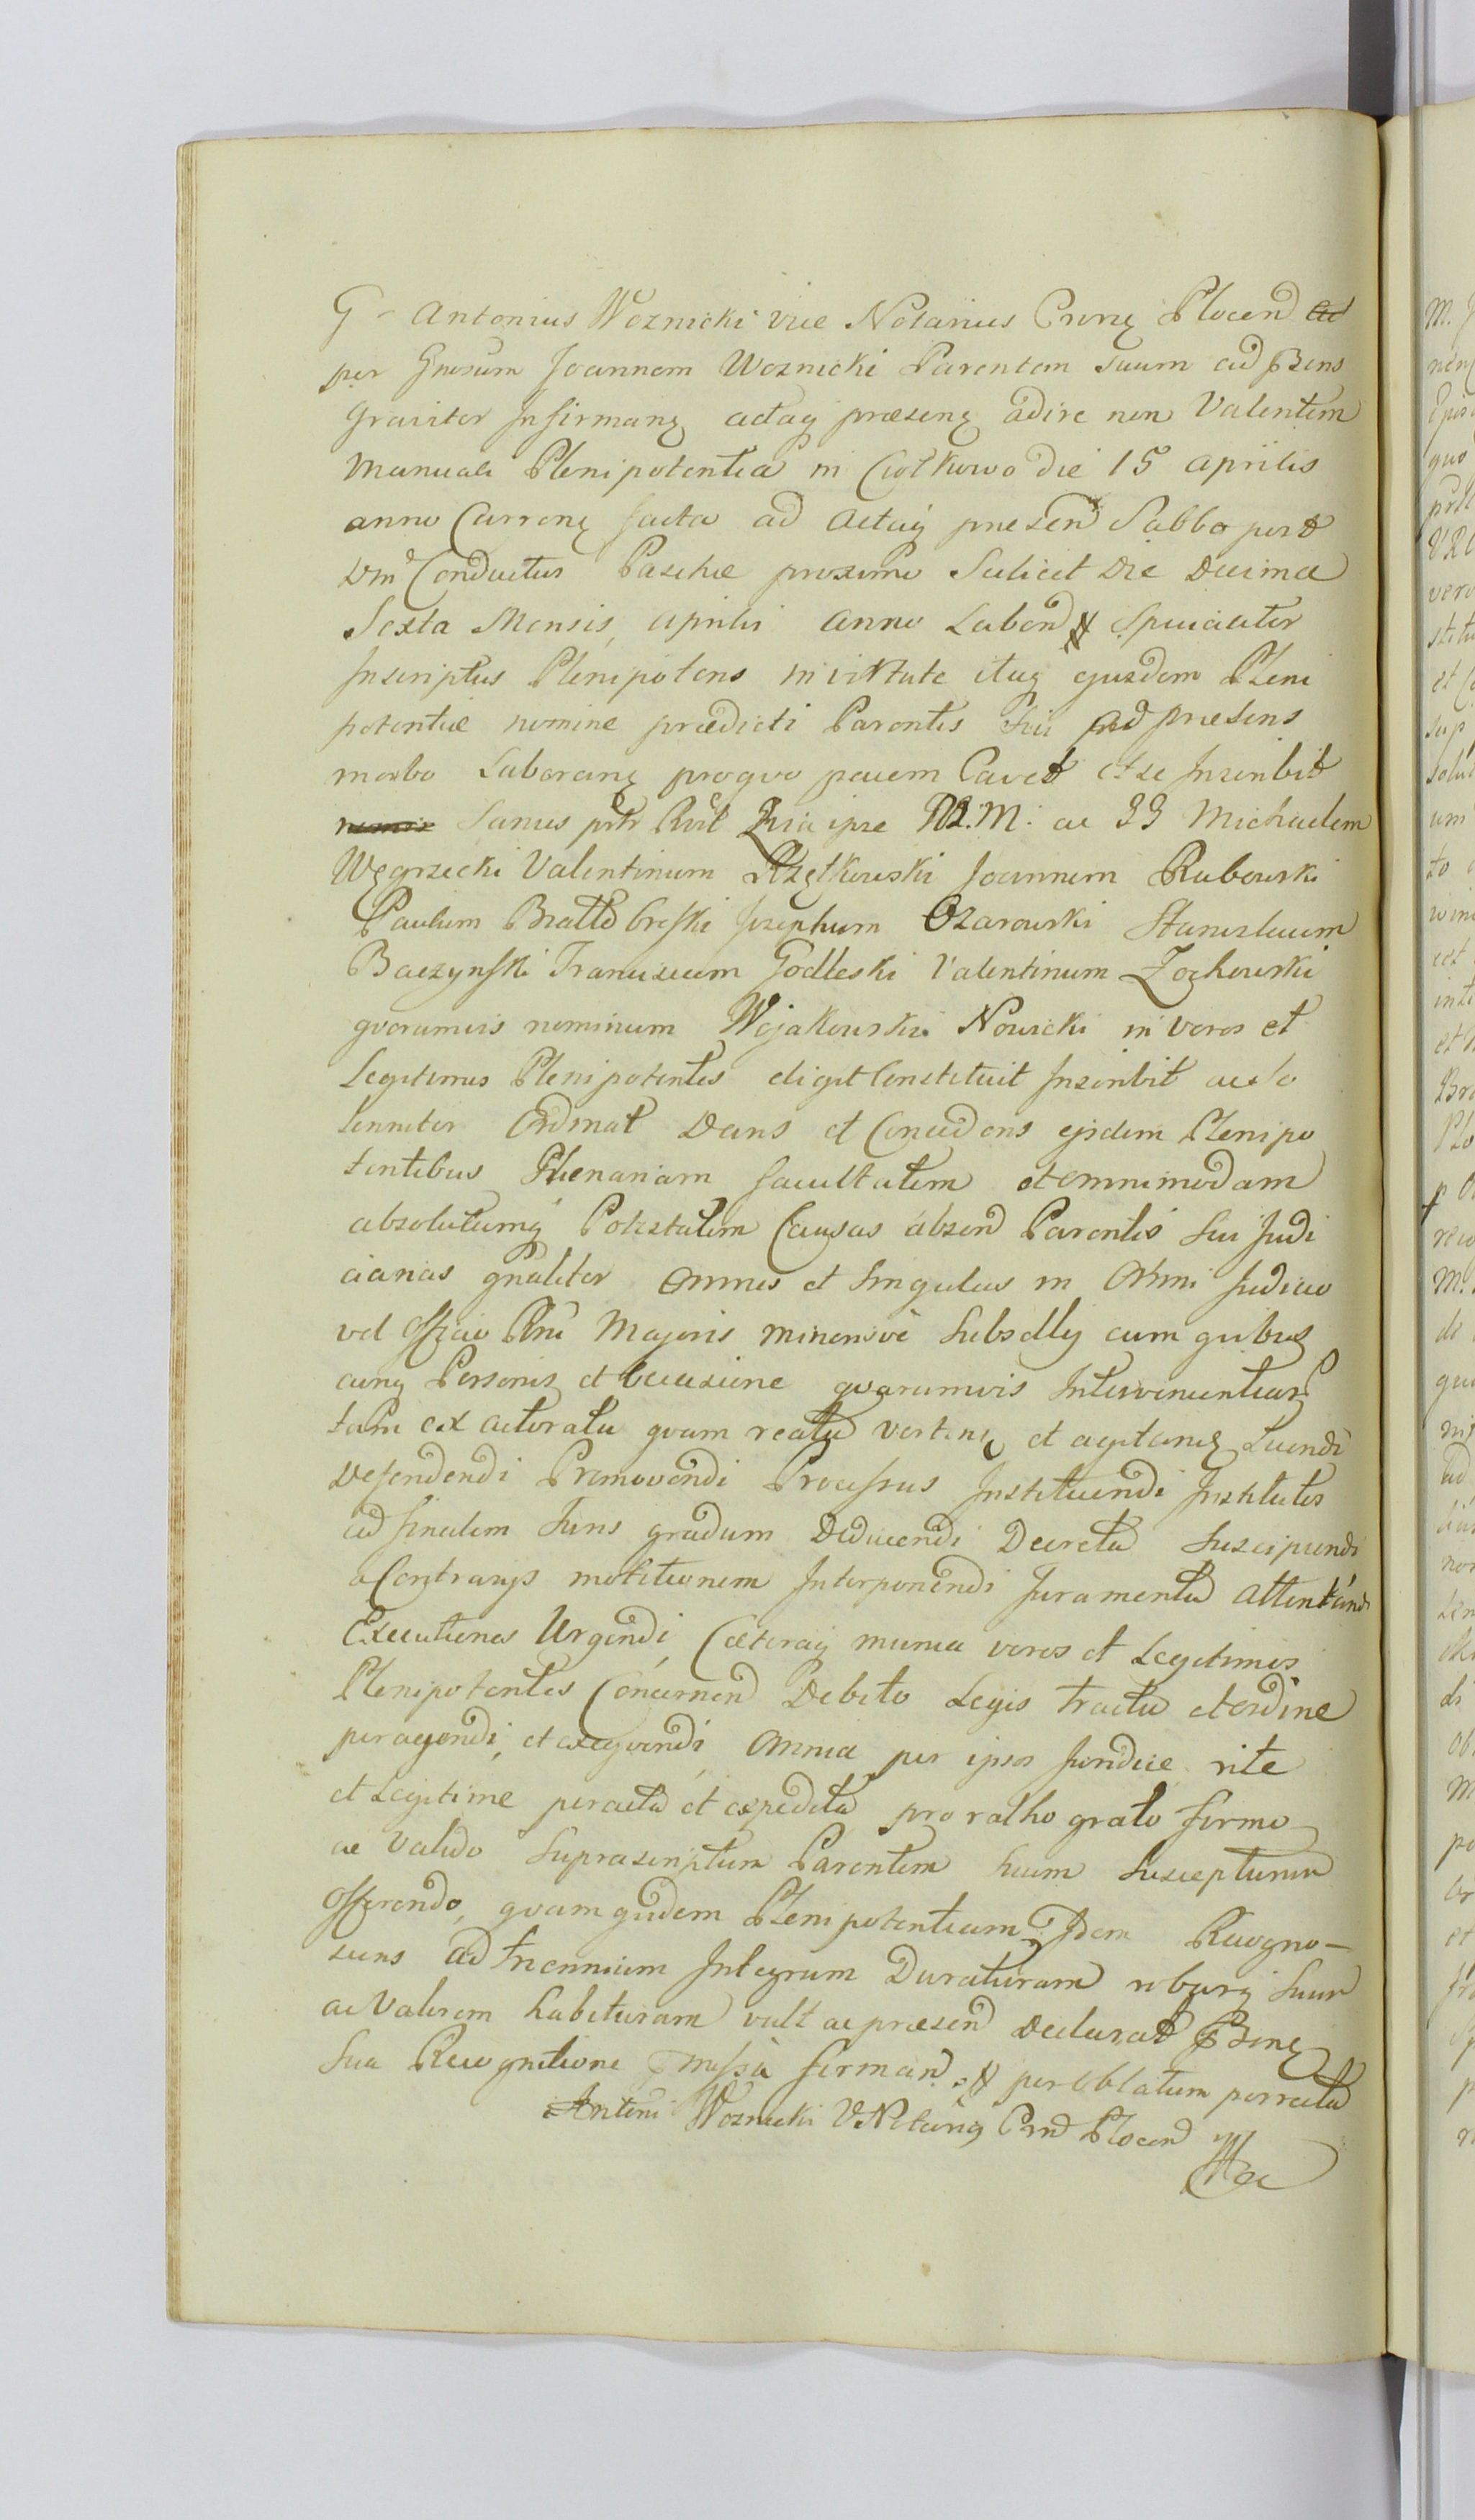 G. Antonius Woznicki vice Notarius Crnꝫ Plocen ad
per Gnosum Joannem Woznicki Parentem suum ad ꝑsens
Graviter Infirmanꝫ actaqꝫ præsenꝫ adire non Valentem
Manuali Plenipotentia in Ciołkowo die 15 aprilis
anno Currenꝫ facta ad Actaqꝫ præsen Sabbo post
Dm Conductus Paschæ proximo Scilicet Die Decima
Sexta Mensis, Aprilis anno Laben Specialiter
Inscriptus Plenipotens in virtute itaqꝫ ejusdem Pleni
potentiæ nomine prædicti Parentis sui ad præsens
morbo Laboranꝫ proqvo pacem Cavet et se Inscribit
Sanus Quia ipse M.M. ac GG Michaelem
Węgrzecki Valentinum Rzętkowski Joannem Rubowski
Paulum Josephum Ozarowski Stanislaum
Baczynski Franciscum Godleski Valentinum Żochowski
qvorumvis nominum Wojakowskie Nowicki in veros et
Legitimos Plenipotentes eligit Constituit Inscribit ac So
lenniter Ordinat Dans et Concedens ejsdem Plenipo
tentibus Plenariam facultatem et omnimodam
absolutamqꝫ Potestatem Causas absen Parentis sui Judi
ciarias gnaliter Omnes et Singulas in Omni Judicio
vel Officio Rni Majoris minorisve Subsellij cum qvibus
cunqꝫ Personis et occasione qvarumvis Intervenientiar
tam ex actoratu qvam reatu vertenꝫ et agitanꝫ Luendi
Defendendi Promovendi Processus Instituendi Institutos
ad finalem Juris gradum Deducendi Decreta Suscipiendi
a Contrarijs motionem Interponendi Juramenta Attentandi
Executiones Urgendi, Cæteraqꝫ munia veros et Legitimos
Plenipotentes Concernen Debito Legis tractu et ordine
peragendi, et exeqvendi, Omnia per ipsos Juridice rite
et Legitime peracta et expedita pro ratho grato firmo
ac Valido Suprascriptum Parentem suum Suscepturum
Offerendo, qvam qvidem Plenipotentiam Idem Recogno-
scens ad triennium Integrum Duraturam roburqꝫ Suum
ac Valorem habituram vult ac præsen Declarat
Sua Recognitione firman per oblatum porrecta
Antoni Woznicki VNotariꝫ Crn Plocen